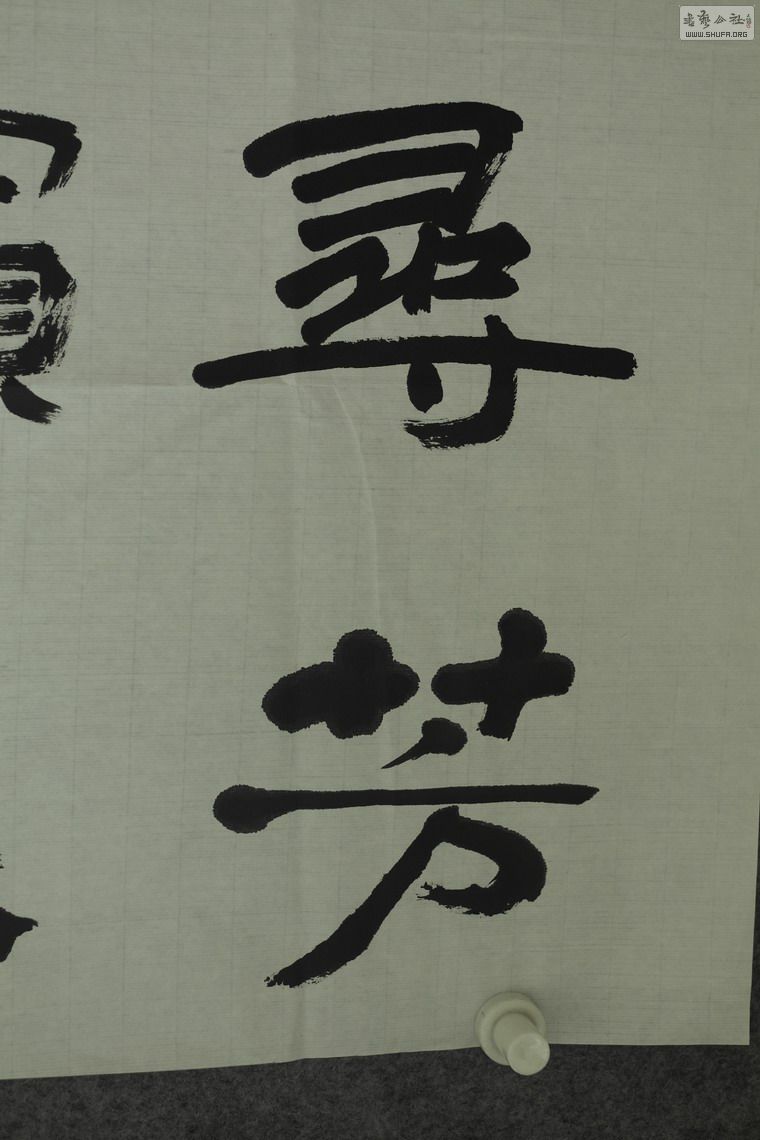 尋芳
書藝公社
WWW.SHUFA.ORG